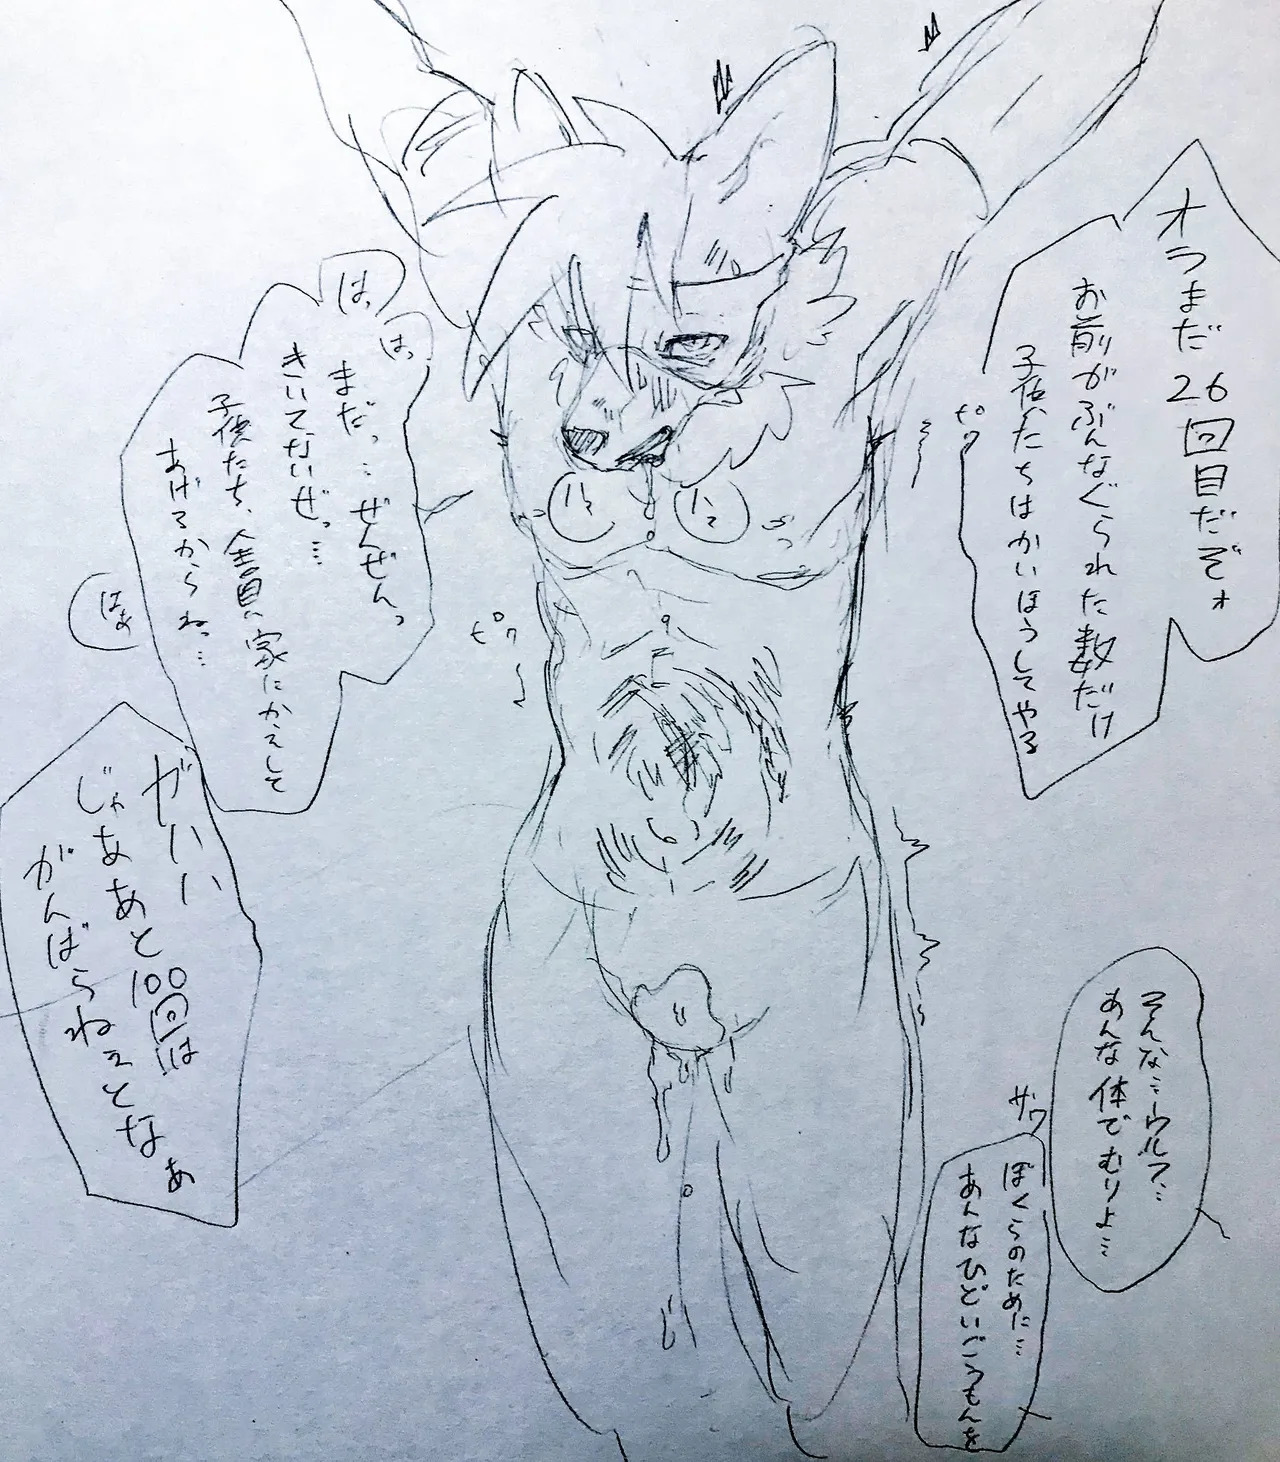 オラまだ26回目だぞォ
お前がぶんなぐられた数だけ
子供たちはかいほうしてやる
ピクッ
は、
は、
まだっ…ぜんぜんっ
きいてないぜっ…
子供たち、全員、家にかえして
あげるからねっ…
はぁ
ハァ
ハァ
ピクッ
ガハハハ
じゃああと100回は
がんばらねェとなぁ
そんな…ウルフ…
あんな体でむりよ…
ザワ
ぼくらのために…
あんなひどいごうもんを